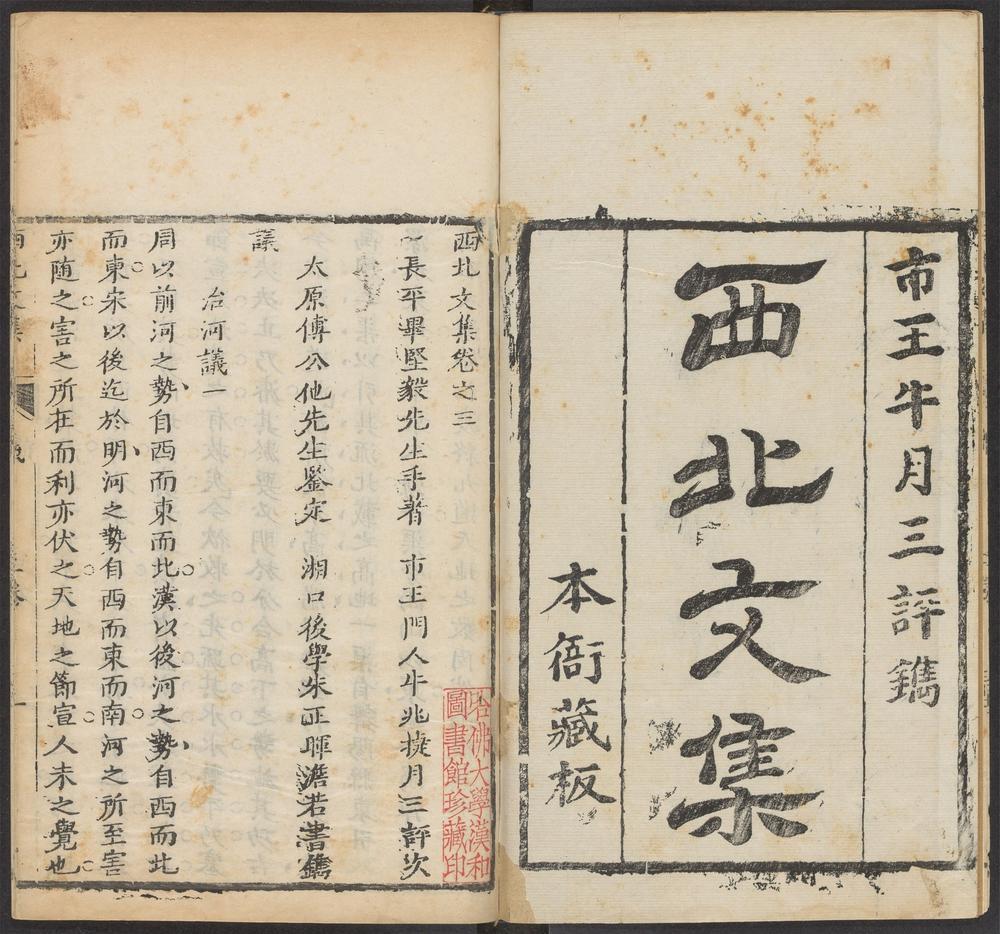 市王牛月三評鐫
西北文集
本衙藏板
西北文集卷之三
長平畢堅毅先生手著 市王門人牛兆捷月三評次
太原傅公他先生鑒定 湘口後學朱正暉澹若書鐫
議
治河議一
周以前河之勢自西而東而北漢以後河之勢自西而北
而東宋以後迄於明河之勢自西而東而南河之所至害
亦随之害之所在而利亦伏之天地之節宣人未之覺也
西北文集
一
哈佛大學漢和
圖書館珍藏印